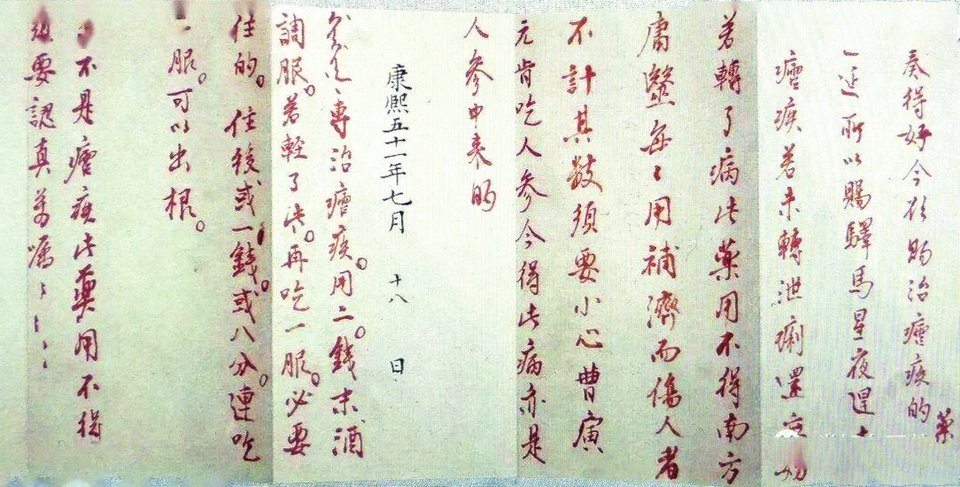 奏得好今欲賜治瘧疾的藥
延所以賜驛馬星夜趕
瘧疾若未轉泄痢還
若轉了病此藥用不得南方
庸醫每々用補濟而傷人者
不計其數須要小心曹寅
元肯吃人參今得此病亦是
人參中來的
康熙五十一年七月 十八 日
專治瘧疾。用二錢。末酒
調服。若輕了些。再吃一服。必要
住的。住後或一錢。或八分。連吃
服。可以出根。
不是瘧疾此藥用不得
須要認真萬囑々々々